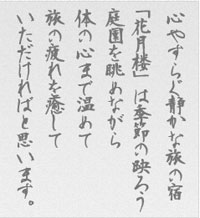 心やすらぐ静かな旅の宿
「花月楼」は季節の映ろう
庭園を眺めながら
体の心まで温めて
旅の疲れを癒して
いただければと思います。